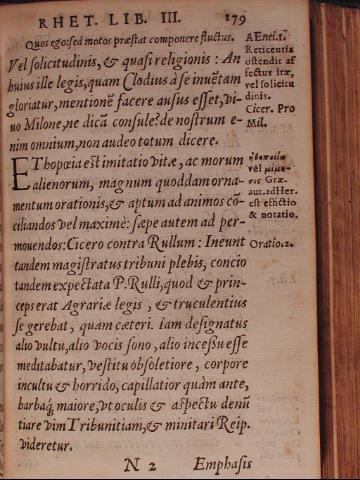 RHET. LIB. III. 179
Quos ego: sed motos præstat componere fluctus.
Vel solicitudinis, & quasi religionis: An
huius ille legis, quam Clodius à se inuētam
gloriatur, mentionē facere ausus esset, vi-
uo Milone, ne dicā consule? de nostrum e-
nim omnium, non audeo totum dicere.
EThopœia est imitatio vitæ, ac morum
alienorum, magnum quoddam orna-
mentum orationis, & aptum ad animos cō-
ciliandos vel maximè: sæpe autem ad per-
mouendos: Cicero contra Rullum: Ineunt
tandem magistratus tribuni plebis, concio
tandem expectata P. Rulli, quod & prin-
ceps erat Agrariæ legis, & truculentius
se gerebat, quàm cæteri. Iam designatus
alio vultu, alio vocis sono, alio incessu esse
meditabatur, vestitu obsoletiore, corpore
incultu & horrido, capillatior quàm ante,
barbaq́; maiore, vt oculis & aspectu denū
tiare vim Tribunitiam, & minitari Reip.
videretur.
N 2 Emphasis
AEnei. 1.
Reticentia
ostendit af
fectus iræ,
vel solicitu
dinis.
Cicer. Pro
Mil.
ἠθοποιΐα
vel μίμη-
σις Græ-
aut. ad Her.
est effictio
& notatio.
Oratio. 2.